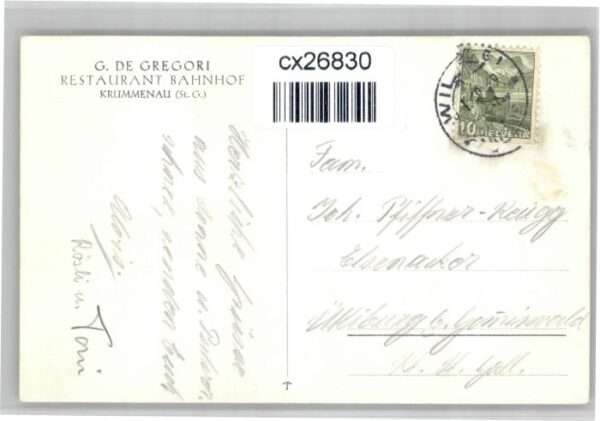 G. DE GREGORI
RESTAURANT BAHNHOF
KRUMMENAU (St. G.)
cx26830
WIL
10 HELVETIA
Herzliche Grüsse
aus Sonne u. Pulver
schnee, senden Euch
Alois.
Rösli u. Toni
Fam.
Joh. Pfiffner-Rüegg
Elsenacker
b. Gommiswald
Kt. St. Gall.